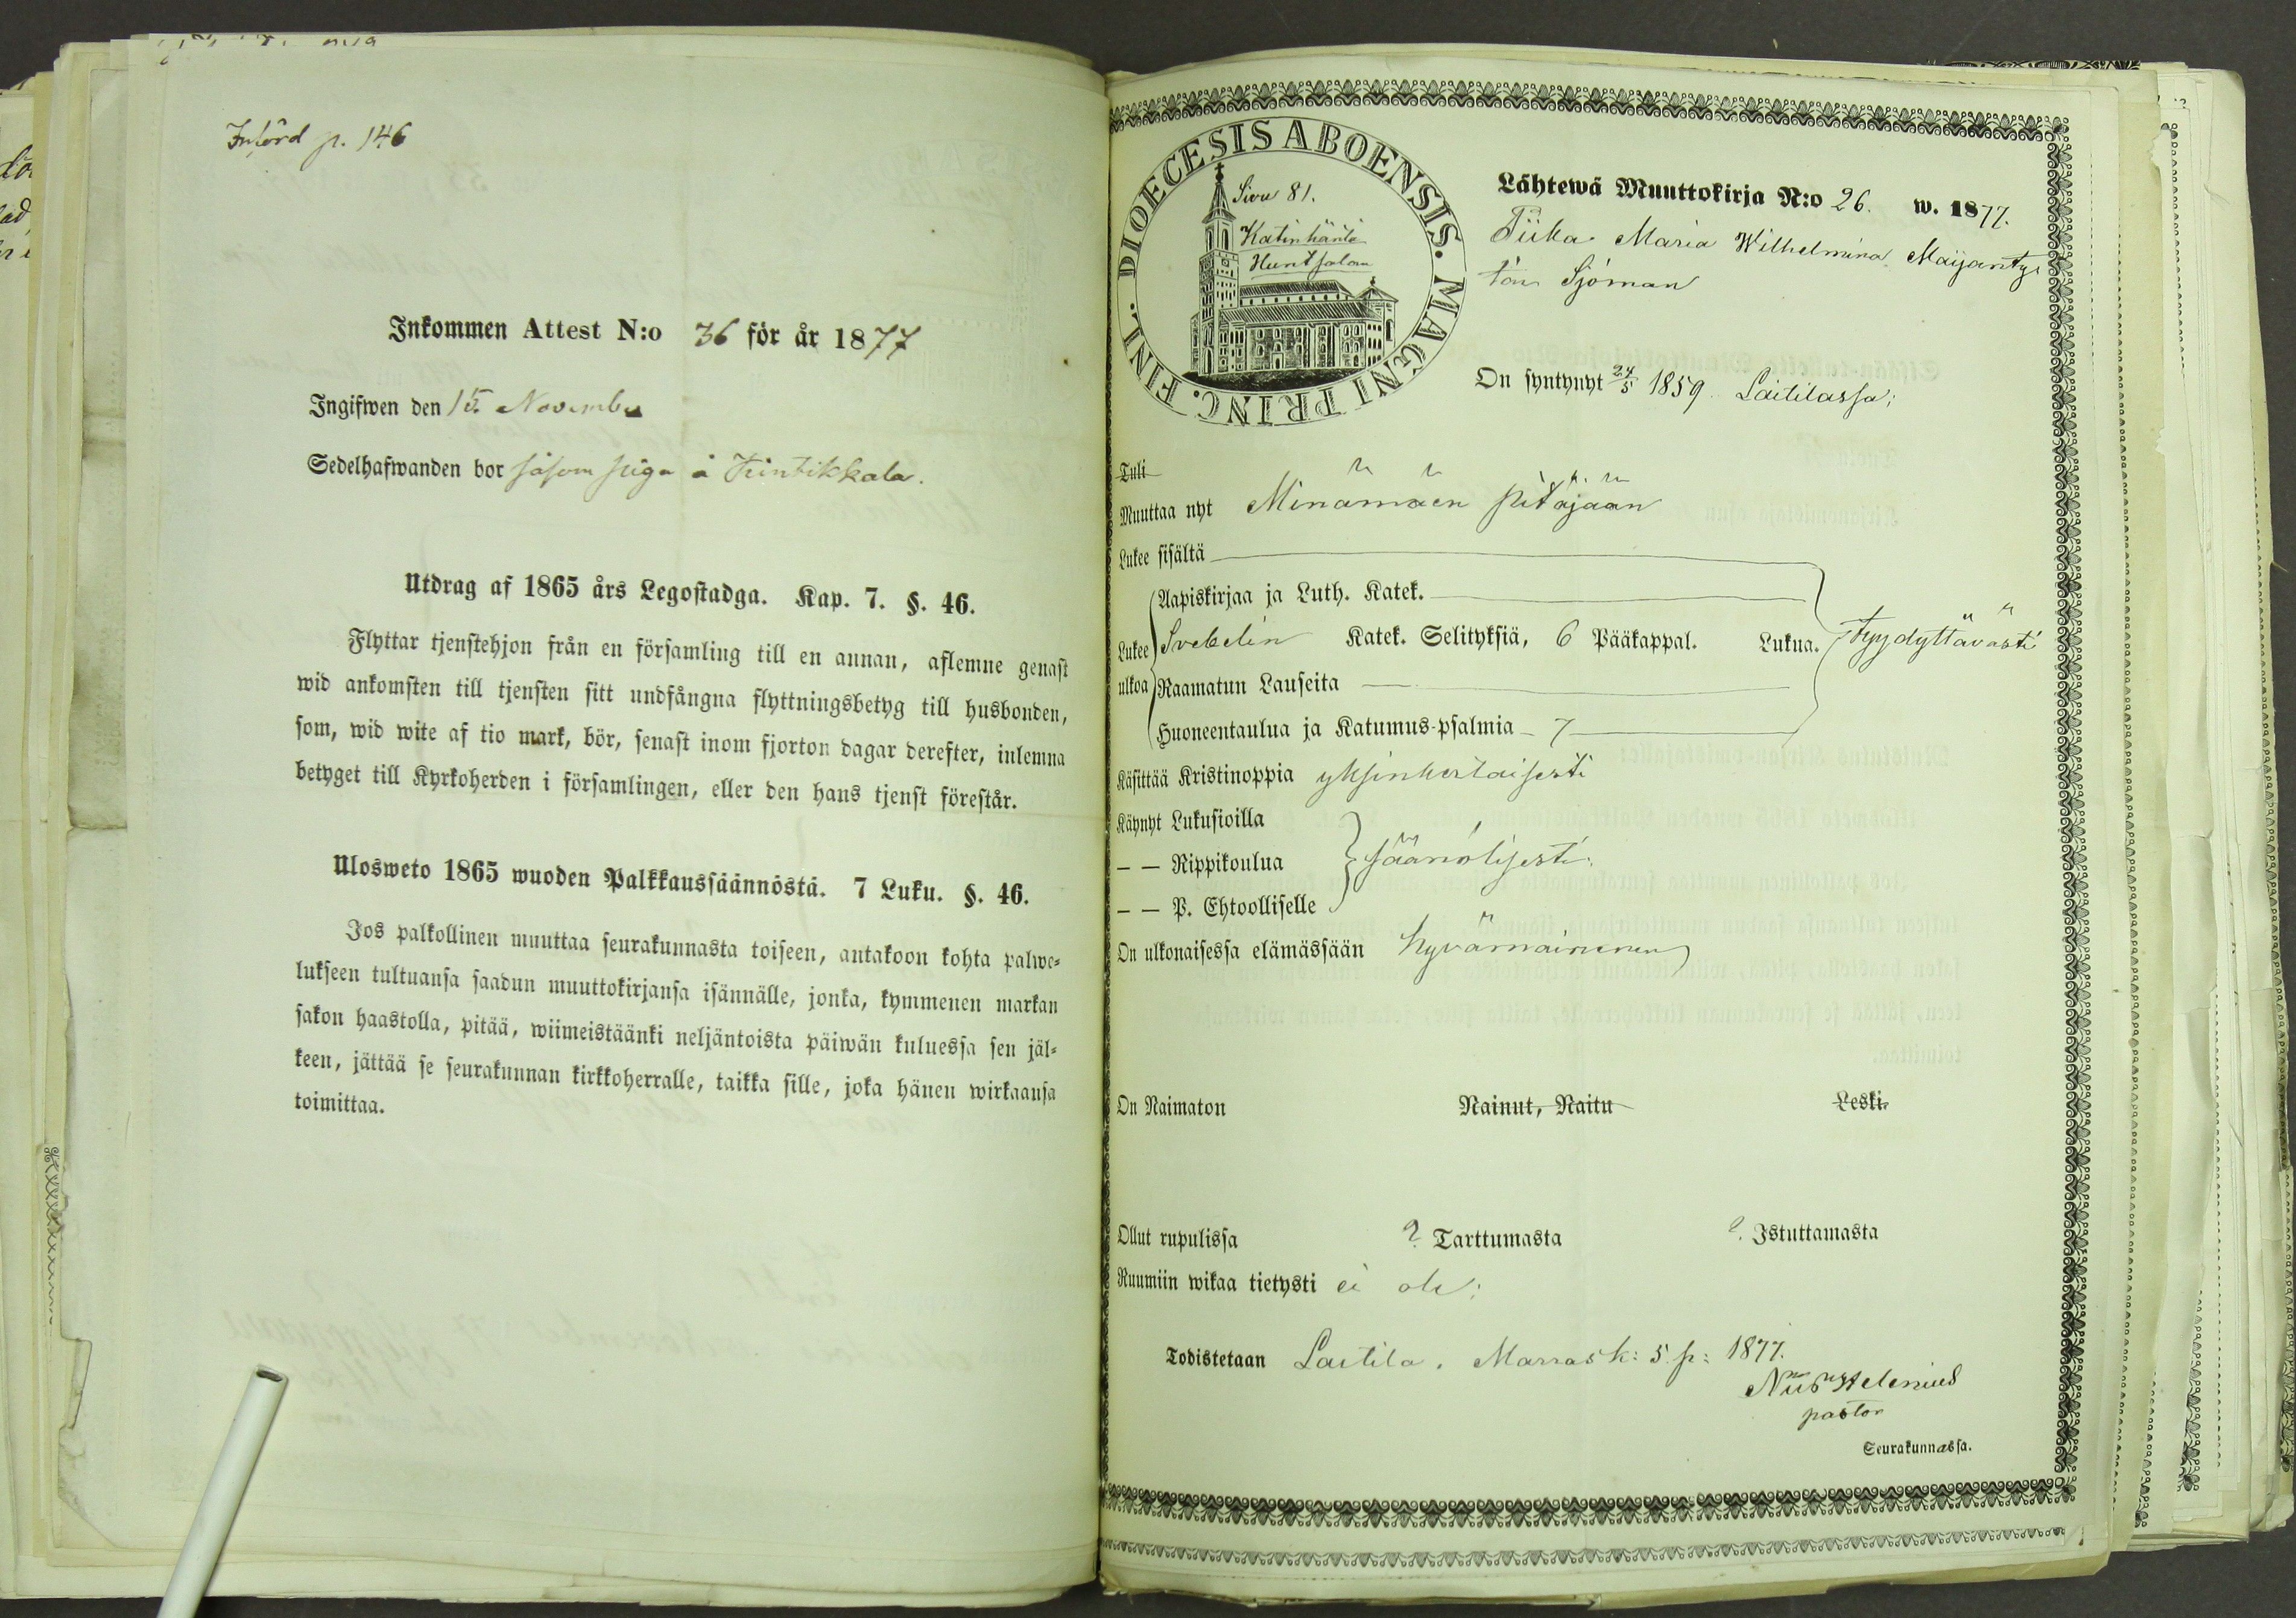 Införd p. 146
Inkommen Attest N:o 36 för år 1877
Ingifwen den 15 November
Sedelhafwanden bor såsom piga å
Utdrag af 1865 års Legostadga. Kap. 7. §. 46.
Flyttar tjenstehjon från en församling till en annan, aflemne genast
wid ankomsten till tjensten sitt undfångna flyttningsbetyg till husbonden,
som, wid wite af tio mark, bör, senast inom fjorton dagar derefter, inlemna
betyget till Kyrkoherden i församlingen, eller den hans tjenst förestår.
Ulosweto 1865 wuoden Palkkaussäännöstä. 7 Luku. §. 46.
Jos palkollinen muuttaa seurakunnasta toiseen, antakoon kohta palwe-
lukseen tultuansa saadun muuttokirjansa isännälle, jonka, kymmenen markan
sakon haastolla, pitää, wiimeistäänki neljäntoista päiwän kuluessa sen jäl-
keen, jättää se seurakunnan kirkkoherralle, taikka sille, joka hänen wirkaansa
toimittaa.
DIOECESIS ABOENSIS. MAGNI PRINC. FINL.
Sivu 81.
Katinhäntä
Huntjalan
Lähtewä Muuttokirja N:o 26. w. 1877.
Piika Maria Wilhelmina Maijanty-
tön Sjöman
On syntynyt 24/5 1859. Laitilassa;
Tuli
Muuttaa nyt Minämäen pitäjään
Lukee sisältä
Aapiskirjaa ja Luth. Katek.
Lukee ulkoa
Svebelin Katek. Selityksiä, 6 Pääkappal. Lukua. tyydyttävästi
Raamatun Lauseita
Huoneentaulua ja Katumus-psalmia 7
Käsittää Kristinoppia yksinkertaisesti
Käynyt Lukusioilla
— — Rippikoulua säänölisesti.
— — P. Ehtoolliselle
On ulkonaisessa elämässään hyvämaineinen
On Naimaton Nainut, Naitu Leski.
Ollut rupulissa ? Tarttumasta ? Istuttamasta
Ruumiin wikaa tietysti ei ole;
Todistetaan Laitila. Marrask: 5 p: 1877.
Helenius
pastor
Seurakunnassa.